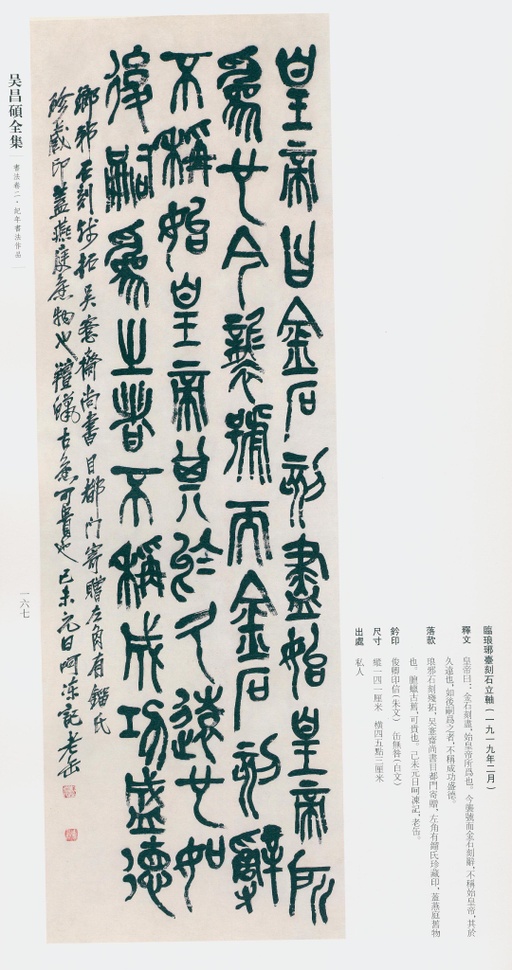 臨琅琊臺刻石立軸（一九一九年二月）
釋文 皇帝曰：金石刻盡，始皇帝所爲也。今襲號而金石刻辭，不稱始皇帝，其於
久遠也，如後嗣爲之者，不稱成功盛德。
落款 琅邪石刻殘拓，吳愙齋尚書自都門寄贈，左角有鎦氏珍藏印，蓋燕庭舊物
也。氊蠟古舊，可貴也。己未元日呵凍記，老缶。
鈐印 俊卿印信（朱文） 缶無咎（白文）
尺寸 縱一四一厘米 橫四五點三厘米
出處 私人
皇帝曰金石刻盡始皇帝所
爲也今襲號而金石刻辭
不稱始皇帝其於久遠也如
後嗣爲之者不稱成功盛德
瑯邪石刻殘拓吳愙齋尚書自都門寄贈左角有鎦氏
珍藏印蓋燕庭舊物也氊蠟古舊可貴也己未元日呵凍記老缶
吴昌碩全集
書法卷二·紀年書法作品
一六七